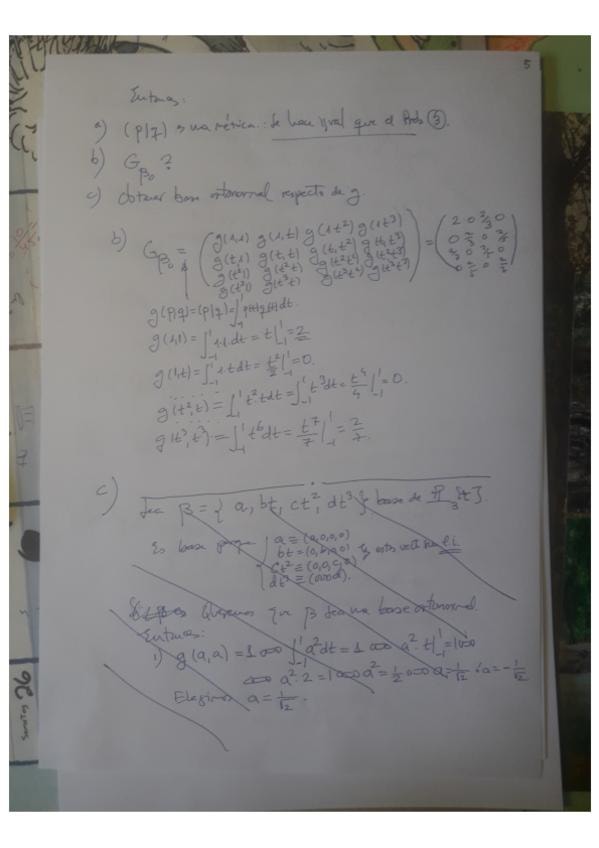 5
Entonces:
a) (p|q) es una métrica: Se hace igual que el Prob (5).
b) G_β₀ ?
c) Obtener base ortonormal respecto de g.
b) G_β₀ = ( g(1,1) g(1,t) g(1,t²) g(1,t³) ) = ( 2 0 2/3 0 )
g(t,1) g(t,t) g(t,t²) g(t,t³) 0 2/3 0 2/5
g(t²,1) g(t²,t) g(t²,t²) g(t²,t³) 2/3 0 2/5 0
g(t³,1) g(t³,t) g(t³,t²) g(t³,t³) 0 2/5 0 2/7
g(p,q)=(p|q)=∫₋₁¹ p(t)q(t)dt.
g(1,1)=∫₋₁¹ 1·1·dt = t|₋₁¹ = 2
g(1,t)=∫₋₁¹ 1·t dt = t²/2|₋₁¹ = 0.
g(t²,t)=∫₋₁¹ t²·t dt = ∫₋₁¹ t³dt = t⁴/4|₋₁¹ = 0.
g(t³,t³)=∫₋₁¹ t⁶dt = t⁷/7|₋₁¹ = 2/7.
c) Sea β = { a, bt, ct², dt³ } base de P₃[t].
Es base porque a ≡ (a,0,0,0)
bt = (0,b,0,0) y estos vect. son l.i.
ct² ≡ (0,0,c,0)
dt³ ≡ (0,0,0,d).
Queremos que β sea una base ortonormal.
Entonces:
1) g(a,a) = 1 ⟺ ∫₋₁¹ a²dt = 1 ⟺ a²·t|₋₁¹ = 1 ⟺
⟺ a²·2 = 1 ⟺ a² = 1/2 ⟺ a = 1/√2 ó a = -1/√2
Elegimos a = 1/√2.
26